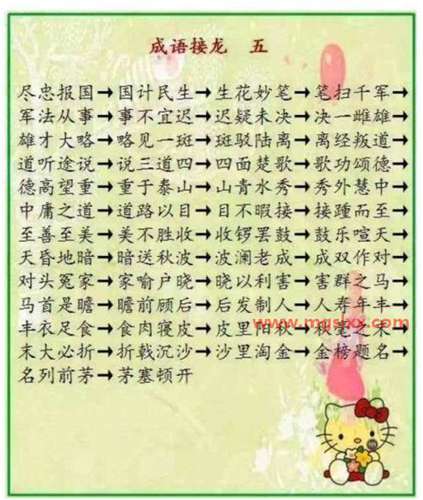 成语接龙 五
尽忠报国→国计民生→生花妙笔→笔扫千军→
军法从事→事不宜迟→迟疑未决→决一雌雄→
雄才大略→略见一斑→斑驳陆离→离经叛道→
道听途说→说三道四→四面楚歌→歌功颂德→
德高望重→重于泰山→山青水秀→秀外慧中→
中庸之道→道路以目→目不暇接→接踵而至→
至善至美→美不胜收→收锣罢鼓→鼓乐喧天→
天昏地暗→暗送秋波→波澜老成→成双作对→
对头冤家→家喻户晓→晓以利害→害群之马→
马首是瞻→瞻前顾后→后发制人→人寿年丰→
丰衣足食→食肉寝皮→皮里阳秋→秋毫之末→
末大必折→折戟沉沙→沙里淘金→金榜题名→
名列前茅→茅塞顿开
www.mgsxx.com